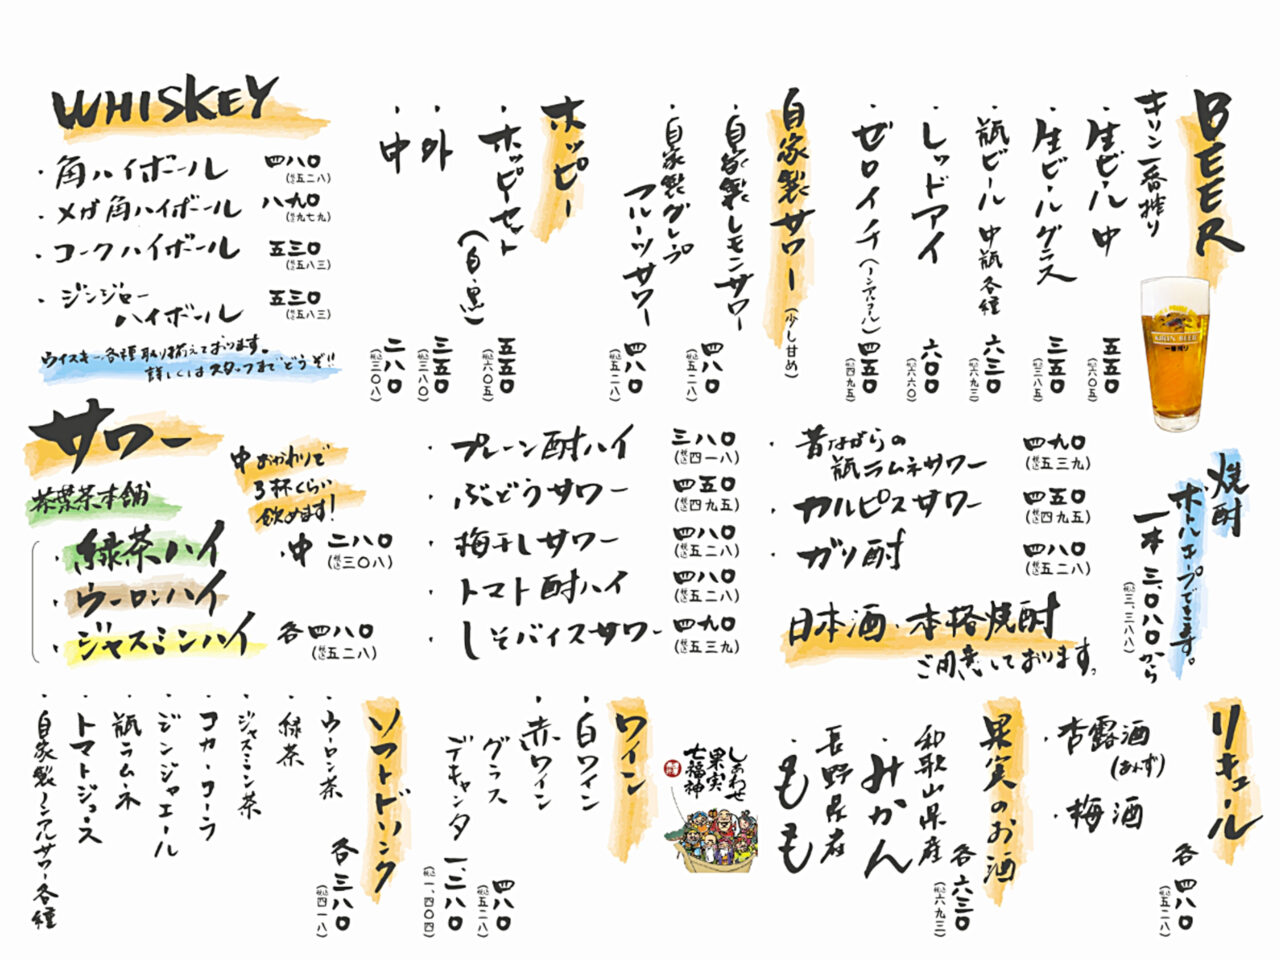 BEER
キリン一番搾り
・生ビール 中 五五〇
(税込六〇五)
・生ビール グラス 三五〇
(税込三八五)
・瓶ビール 中瓶 各種 六三〇
(税込六九三)
・レッドアイ 六〇〇
(税込六六〇)
・ゼロイチ(ノンアルコール) 四五〇
(税込四九五)
自家製サワー(少し甘め)
・自家製レモンサワー 四八〇
(税込五二八)
・自家製グレープ
フルーツサワー 四八〇
(税込五二八)
ホッピー
・ホッピーセット
(白・黒) 五五〇
(税込六〇五)
・外 三五〇
(税込三八〇)
・中 二八〇
(税込三〇八)
WHISKEY
・角ハイボール 四八〇
(税込五二八)
・メガ角ハイボール 八九〇
(税込九七九)
・コークハイボール 五三〇
(税込五八三)
・ジンジャー
ハイボール 五三〇
(税込五八三)
ウイスキー各種取り揃えております。
詳しくはスタッフまでどうぞ!!
焼酎
ボトルキープできます。
一本 三、〇八〇から
(税込三、三八八)
・昔ながらの
瓶ラムネサワー 四九〇
(税込五三九)
・カルピスサワー 四五〇
(税込四九五)
・ガリ酎 四八〇
(税込五二八)
日本酒・本格焼酎
ご用意しております。
・プレーン酎ハイ 三八〇
(税込四一八)
・ぶどうサワー 四五〇
(税込四九五)
・梅干しサワー 四八〇
(税込五二八)
・トマト酎ハイ 四八〇
(税込五二八)
・しそバイスサワー 四九〇
(税込五三九)
サワー
茶葉茶本舗
中おかわりで
3杯くらい
飲めます!
・緑茶ハイ
・ウーロンハイ
・ジャスミンハイ
・中 二八〇
(税込三〇八)
各四八〇
(税込五二八)
リキュール
・杏露酒
(あんず)
・梅酒
各四八〇
(税込五二八)
果実のお酒
和歌山県産
・みかん
長野県産
・もも
各六三〇
(税込六九三)
しあわせ
果実
七福神
ワイン
・白ワイン
・赤ワイン
グラス 四八〇
(税込五二八)
デキャンタ 一、二八〇
(税込一、四〇四)
ソフトドリンク
・ウーロン茶
・緑茶
・ジャスミン茶
・コカ・コーラ
・ジンジャエール
・瓶ラムネ
・トマトジュース
・自家製ノンアルサワー各種
各三八〇
(税込四一八)